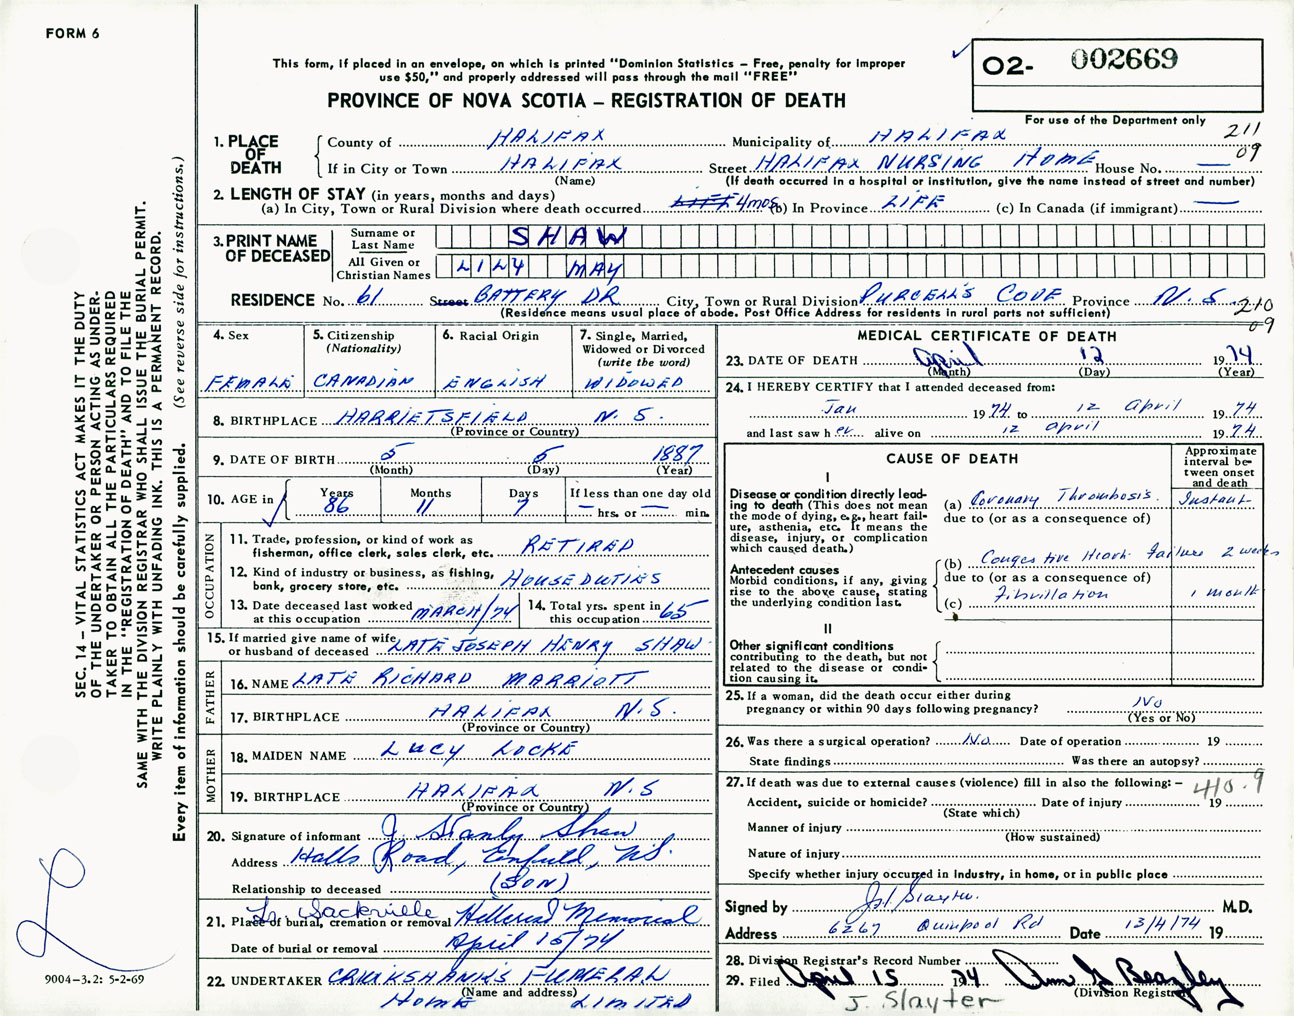 FORM 6
This form, if placed in an envelope, on which is printed "Dominion Statistics – Free, penalty for improper
use $50," and properly addressed will pass through the mail "FREE"
PROVINCE OF NOVA SCOTIA – REGISTRATION OF DEATH
O2- 002669
For use of the Department only
211
09
1. PLACE OF DEATH
County of HALIFAX Municipality of HALIFAX
If in City or Town HALIFAX Street HALIFAX NURSING HOME House No. —
(Name) (If death occurred in a hospital or institution, give the name instead of street and number)
2. LENGTH OF STAY (in years, months and days)
(a) In City, Town or Rural Division where death occurred LIFE 4mos (b) In Province LIFE (c) In Canada (if immigrant) —
3. PRINT NAME OF DECEASED
Surname or Last Name SHAW
All Given or Christian Names LILY MAY
RESIDENCE No. 61 Street BATTERY DR City, Town or Rural Division PURCELL'S COVE Province N.S. 210
09
(Residence means usual place of abode. Post Office Address for residents in rural parts not sufficient)
4. Sex
FEMALE
5. Citizenship
(Nationality)
CANADIAN
6. Racial Origin
ENGLISH
7. Single, Married,
Widowed or Divorced
(write the word)
WIDOWED
8. BIRTHPLACE HARRIETSFIELD N.S.
(Province or Country)
9. DATE OF BIRTH 5 5 1887
(Month) (Day) (Year)
10. AGE in
Years Months Days If less than one day old
86 11 7 — hrs. or — min.
OCCUPATION
11. Trade, profession, or kind of work as
fisherman, office clerk, sales clerk, etc. RETIRED
12. Kind of industry or business, as fishing,
bank, grocery store, etc. HOUSE DUTIES
13. Date deceased last worked
at this occupation MARCH/74
14. Total yrs. spent in
this occupation 65
15. If married give name of wife
or husband of deceased LATE JOSEPH HENRY SHAW
FATHER
16. NAME LATE RICHARD MARRIOTT
17. BIRTHPLACE HALIFAX N.S.
(Province or Country)
MOTHER
18. MAIDEN NAME LUCY LOCKE
19. BIRTHPLACE HALIFAX N.S
(Province or Country)
20. Signature of informant J. Stanly Shaw
Address Halls Road, Enfield, N.S.
Relationship to deceased (SON)
21. Place of burial, cremation or removal Lr Sackville Hillcrest Memorial
Date of burial or removal April 15/74
22. UNDERTAKER CRUIKSHANKS FUNERAL
(Name and address)
HOME LIMITED
MEDICAL CERTIFICATE OF DEATH
23. DATE OF DEATH April 12 1974
(Month) (Day) (Year)
24. I HEREBY CERTIFY that I attended deceased from:
Jan 1974 to 12 April 1974
and last saw her alive on 12 April 1974
CAUSE OF DEATH
Approximate
interval be-
tween onset
and death
I
Disease or condition directly lead-
ing to death (This does not mean
the mode of dying, e.g., heart fail-
ure, asthenia, etc. It means the
disease, injury, or complication
which caused death.)
(a) Coronary Thrombosis. Instant
due to (or as a consequence of)
Antecedent causes
Morbid conditions, if any, giving
rise to the above cause, stating
the underlying condition last.
(b) Congestive Heart failure 2 weeks
due to (or as a consequence of)
(c) Fibrillation 1 month
II
Other significant conditions
contributing to the death, but not
related to the disease or condi-
tion causing it.
25. If a woman, did the death occur either during
pregnancy or within 90 days following pregnancy? No
(Yes or No)
26. Was there a surgical operation? No Date of operation 19
State findings Was there an autopsy?
27. If death was due to external causes (violence) fill in also the following: –
410.9
Accident, suicide or homicide? Date of injury 19
(State which)
Manner of injury
(How sustained)
Nature of injury
Specify whether injury occurred in Industry, in home, or in public place
Signed by J Slayter. M.D.
Address 6267 Quinpool Rd Date 13/4/74 19
28. Division Registrar's Record Number
29. Filed April 15 1974 Ann G Beazley
(Division Registrar)
J. Slayter
SEC. 14 – VITAL STATISTICS ACT MAKES IT THE DUTY
OF THE UNDERTAKER OR PERSON ACTING AS UNDER-
TAKER TO OBTAIN ALL THE PARTICULARS REQUIRED
IN THE "REGISTRATION OF DEATH" AND TO FILE THE
SAME WITH THE DIVISION REGISTRAR WHO SHALL ISSUE THE BURIAL PERMIT.
WRITE PLAINLY WITH UNFADING INK. THIS IS A PERMANENT RECORD.
Every item of information should be carefully supplied. (See reverse side for instructions.)
9004–3.2: 5-2-69